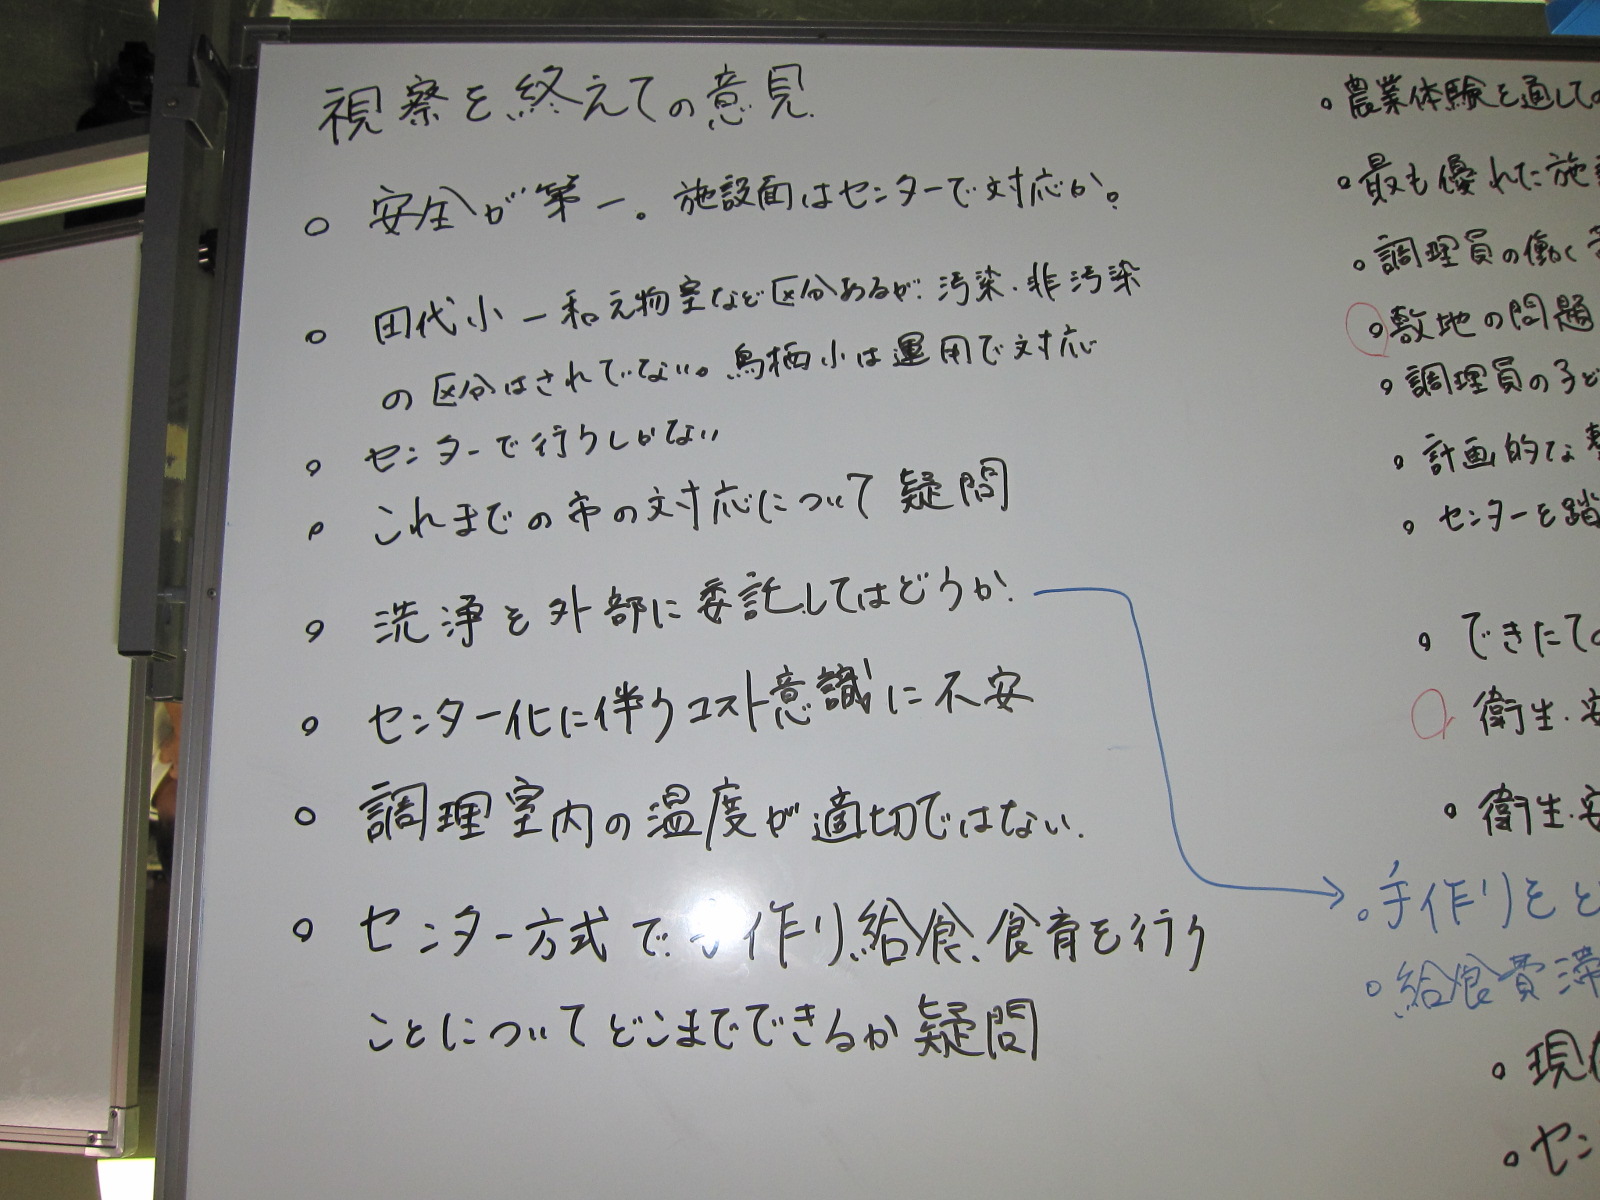 視察を終えての意見
○ 安全が第一。施設面はセンターで対応か。
○ 田代小－和え物室など区分あるが、汚染・非汚染
の区分はされていない。鳥栖小は運用で対応
○ センターで行うしかない
○ これまでの市の対応について疑問
○ 洗浄を外部に委託してはどうか
○ センター化に伴うコスト意識に不安
○ 調理室内の温度が適切ではない。
○ センター方式で、手作り給食、食育を行う
ことについてどこまでできるか疑問
○ 農業体験を通しての
○ 最も優れた施
○ 調理員の働く
○ 敷地の問題
○ 調理員の子ど
○ 計画的な
○ センターを踏
○ できたての
衛生・安
○ 衛生・安
○ 手作りをと
○ 給食費滞
○ 現
○ セン